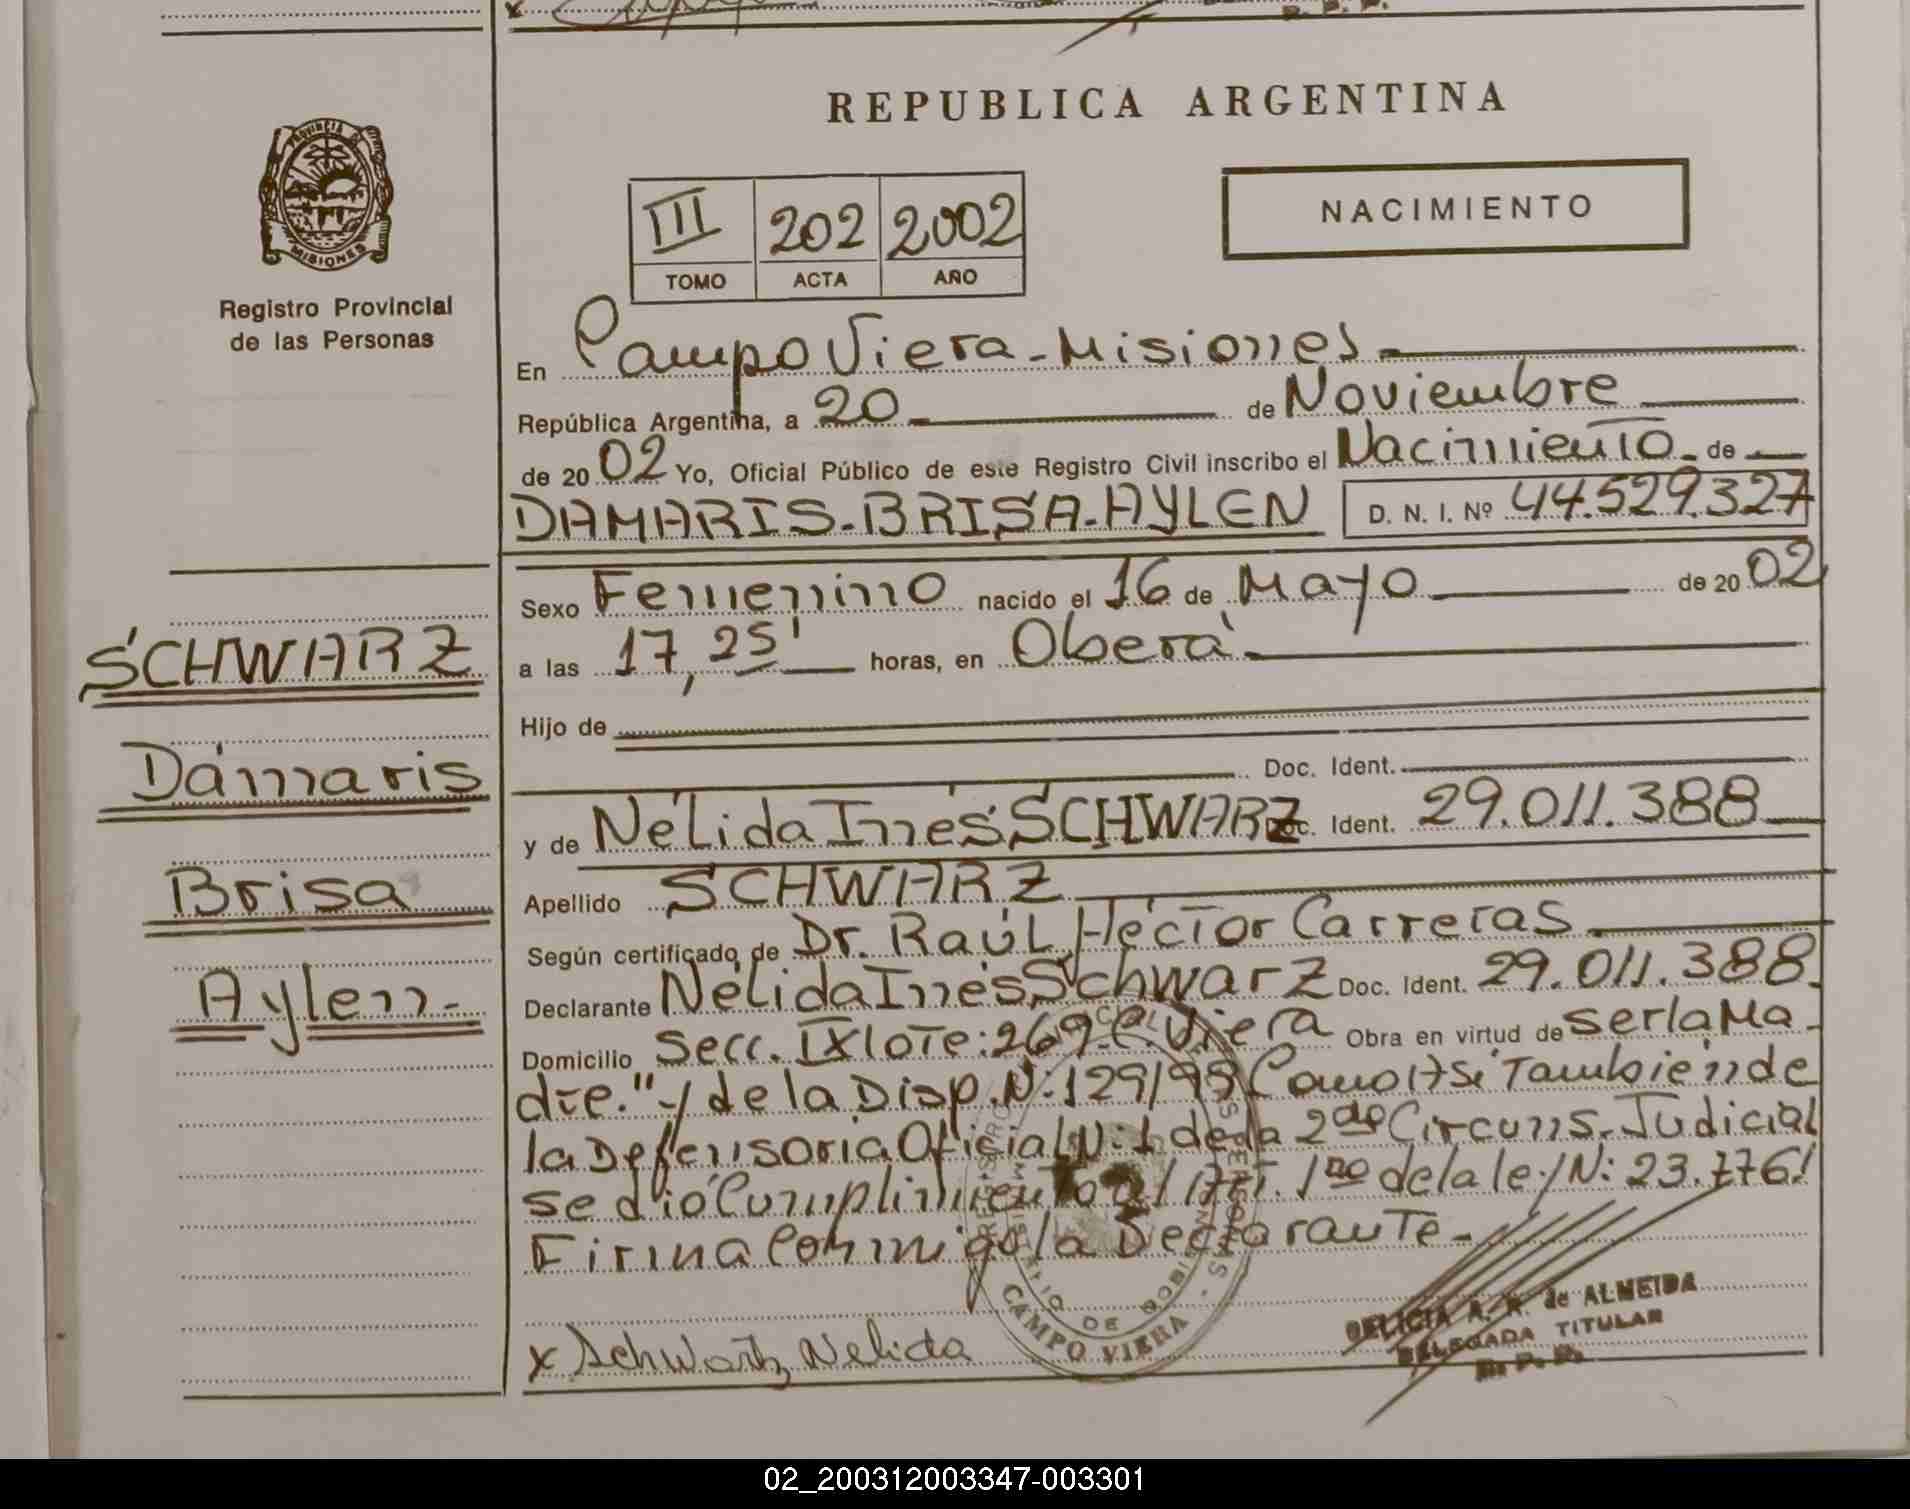 REPUBLICA ARGENTINA
PROVINCIA DE
MISIONES
Registro Provincial
de las Personas
III 202 2002
TOMO ACTA AÑO
NACIMIENTO
En Campo Viera - Misiones
República Argentina, a 20 de Noviembre
de 20 02 Yo, Oficial Público de este Registro Civil inscribo el Nacimiento de
DAMARIS-BRISA-AYLEN D. N. I. Nº 44.529.327
Sexo Femenino nacido el 16 de Mayo de 20 02
a las 17,25' horas, en Oberá
Hijo de
Doc. Ident.
y de Nélida Inés SCHWARZ Doc. Ident. 29.011.388
Apellido SCHWARZ
Según certificado de Dr. Raúl Héctor Carreras
Declarante Nélida Inés Schwarz Doc. Ident. 29.011.388
Domicilio Secc. IX lote: 269-C. Viera Obra en virtud de ser la Ma-
dre." y de la Disp. N: 129/99 Como Así También de
la Defensoria Oficial N: 1 de la 2da Circuns. Judicial
se dió Cumplimiento al Art. 1ro de la ley N: 23.776!
Firma Conmigo la Declarante-
SCHWARZ
Dámaris
Brisa
Aylen-
x Schwartz Nelida
CAMPO VIERA
DELICIA A. R. de ALMEIDA
DELEGADA TITULAR
R. P. P.
02_200312003347-003301